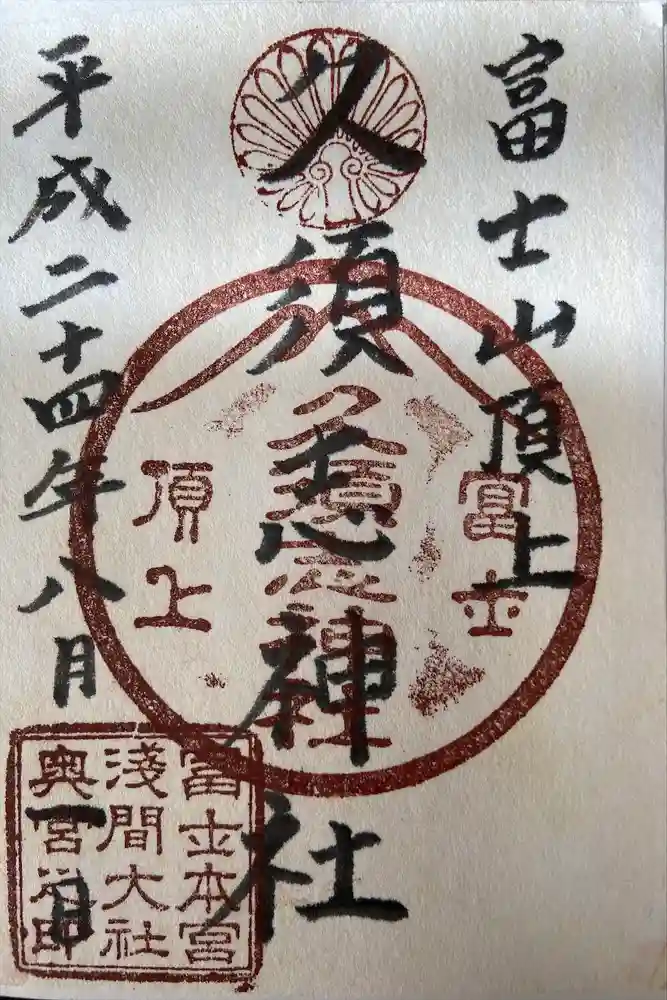 富士山頂上
久須志神社
平成二十四年八月一日
富士
久須志神社
頂上
富士本宮
淺間大社
奥宮之印